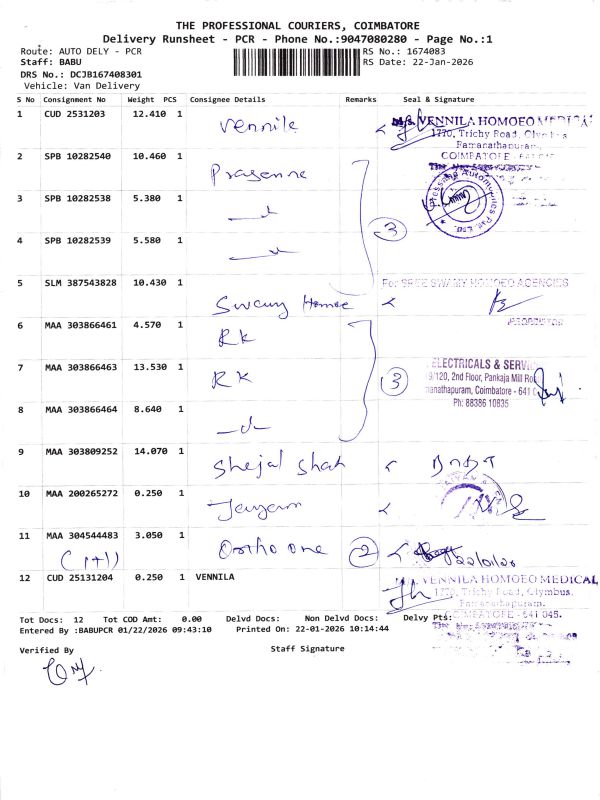 THE PROFESSIONAL COURIERS, COIMBATORE
Delivery Runsheet - PCR - Phone No.:9047080280 - Page No.:1
Route: AUTO DELY - PCR
RS No.: 1674083
Staff: BABU
RS Date: 22-Jan-2026
DRS No.: DCJB167408301
Vehicle: Van Delivery
S No Consignment No Weight PCS Consignee Details Remarks Seal & Signature
1 CUD 2531203 12.410 1 Vennile
M/s. VENNILA HOMOEO MEDICAL
1770, Trichy Road,
Ramanathapuram,
COIMBATORE
2 SPB 10282540 10.460 1 Prasanna
3 SPB 10282538 5.380 1
4 SPB 10282539 5.580 1
3
5 SLM 387543828 10.430 1 Swamy Homoe
For SREE SWAMY HOMOEO AGENCIES
6 MAA 303866461 4.570 1 RK
7 MAA 303866463 13.530 1 RK
8 MAA 303866464 8.640 1
3
ELECTRICALS & SERV
9/120, 2nd Floor, Pankaja Mill Road
manathapuram, Coimbatore - 641
Ph: 88386 10835
9 MAA 303809252 14.070 1 Shejal Shah
10 MAA 200265272 0.250 1 Jayam
11 MAA 304544483 3.050 1 Ortho one 2 22/01/26
(1+1)
12 CUD 25131204 0.250 1 VENNILA
VENNILA HOMOEO MEDICAL
1770, Trichy Road, Olymbus,
Ramanathapuram,
COIMBATORE - 641 045.
Tot Docs: 12 Tot COD Amt: 0.00 Delvd Docs: Non Delvd Docs: Delvy Pts:
Entered By :BABUPCR 01/22/2026 09:43:10 Printed On: 22-01-2026 10:14:44
Verified By Staff Signature